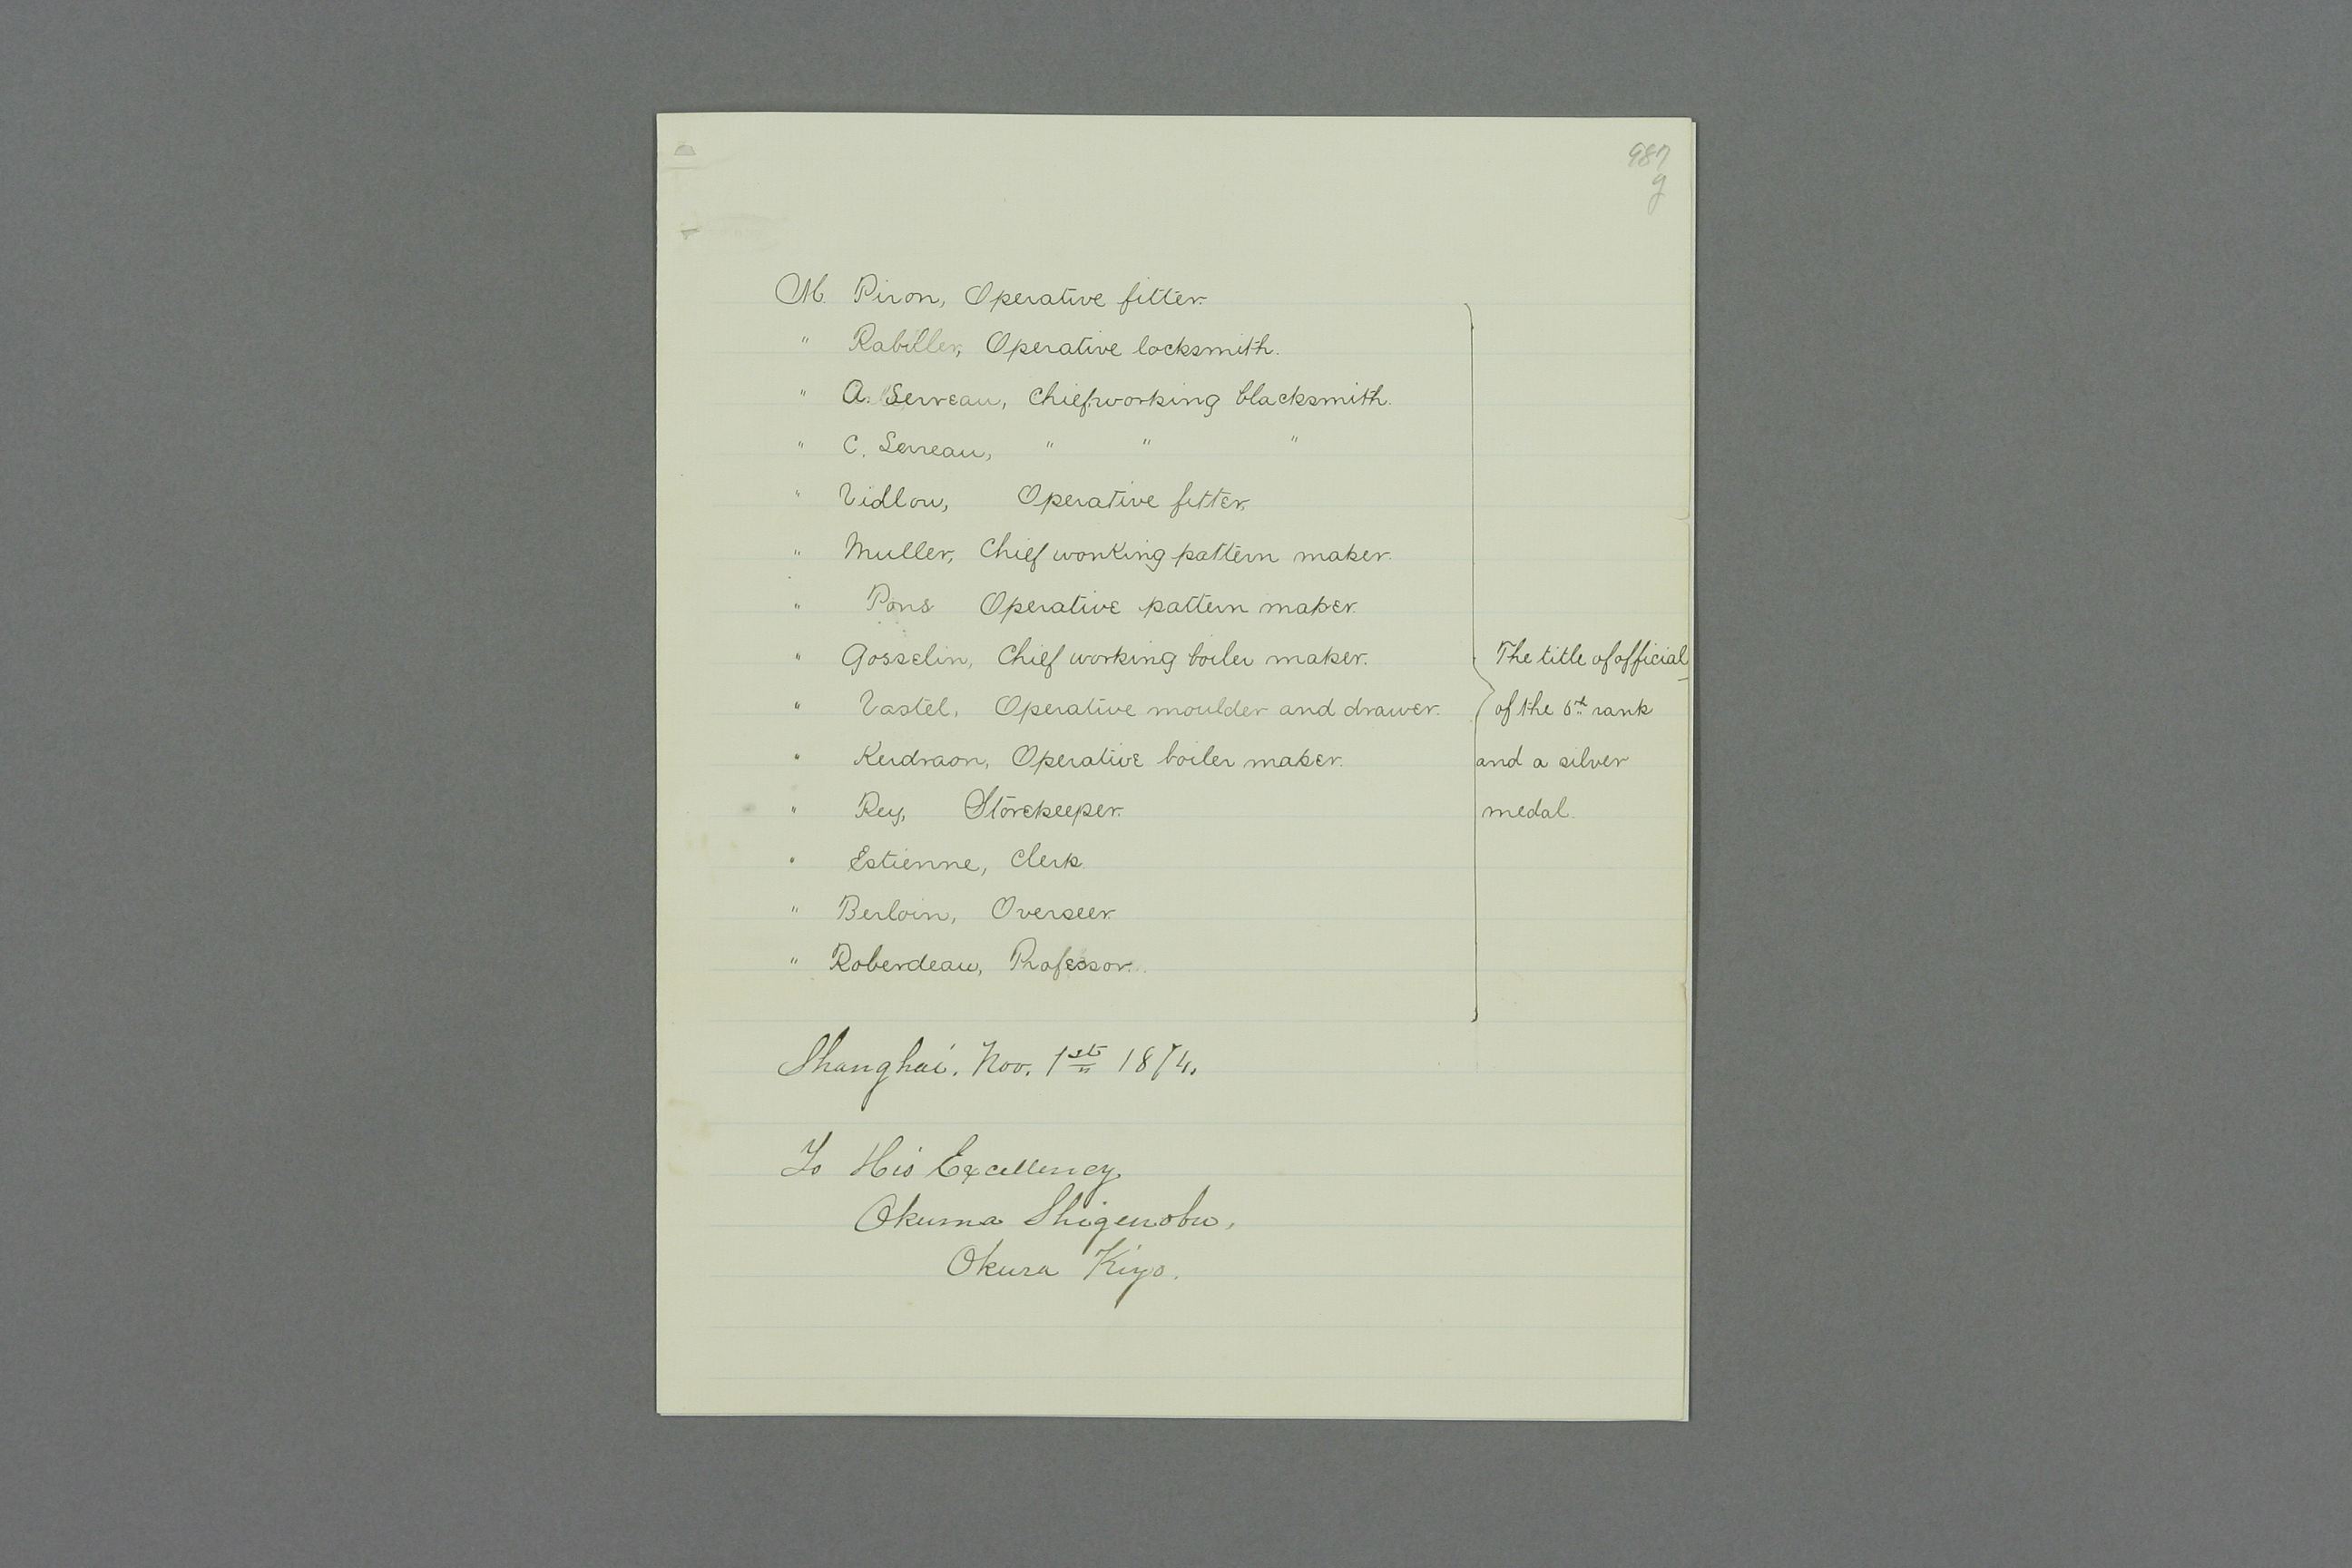 987
g
M. Piron, Operative fitter.
" Rabiller, Operative locksmith.
" A. Serveau, Chief working blacksmith.
" C. Serreau, " " "
" Vidlou, Operative fitter.
" Muller, Chief working pattern maker.
" Pons Operative pattern maker.
" Gosselin, Chief working boiler maker.
" Vastel, Operative moulder and drawer.
" Kerdraon, Operative boiler maker.
" Rey, Storekeeper.
" Estienne, Clerk.
" Berloin, Overseer.
" Roberdeau, Professor.
The title of official
of the 6th rank
and a silver
medal.
Shanghai. Nov. 1st 1874.
To His Excellency
Okuma Shigenobu,
Okura Kiyo.